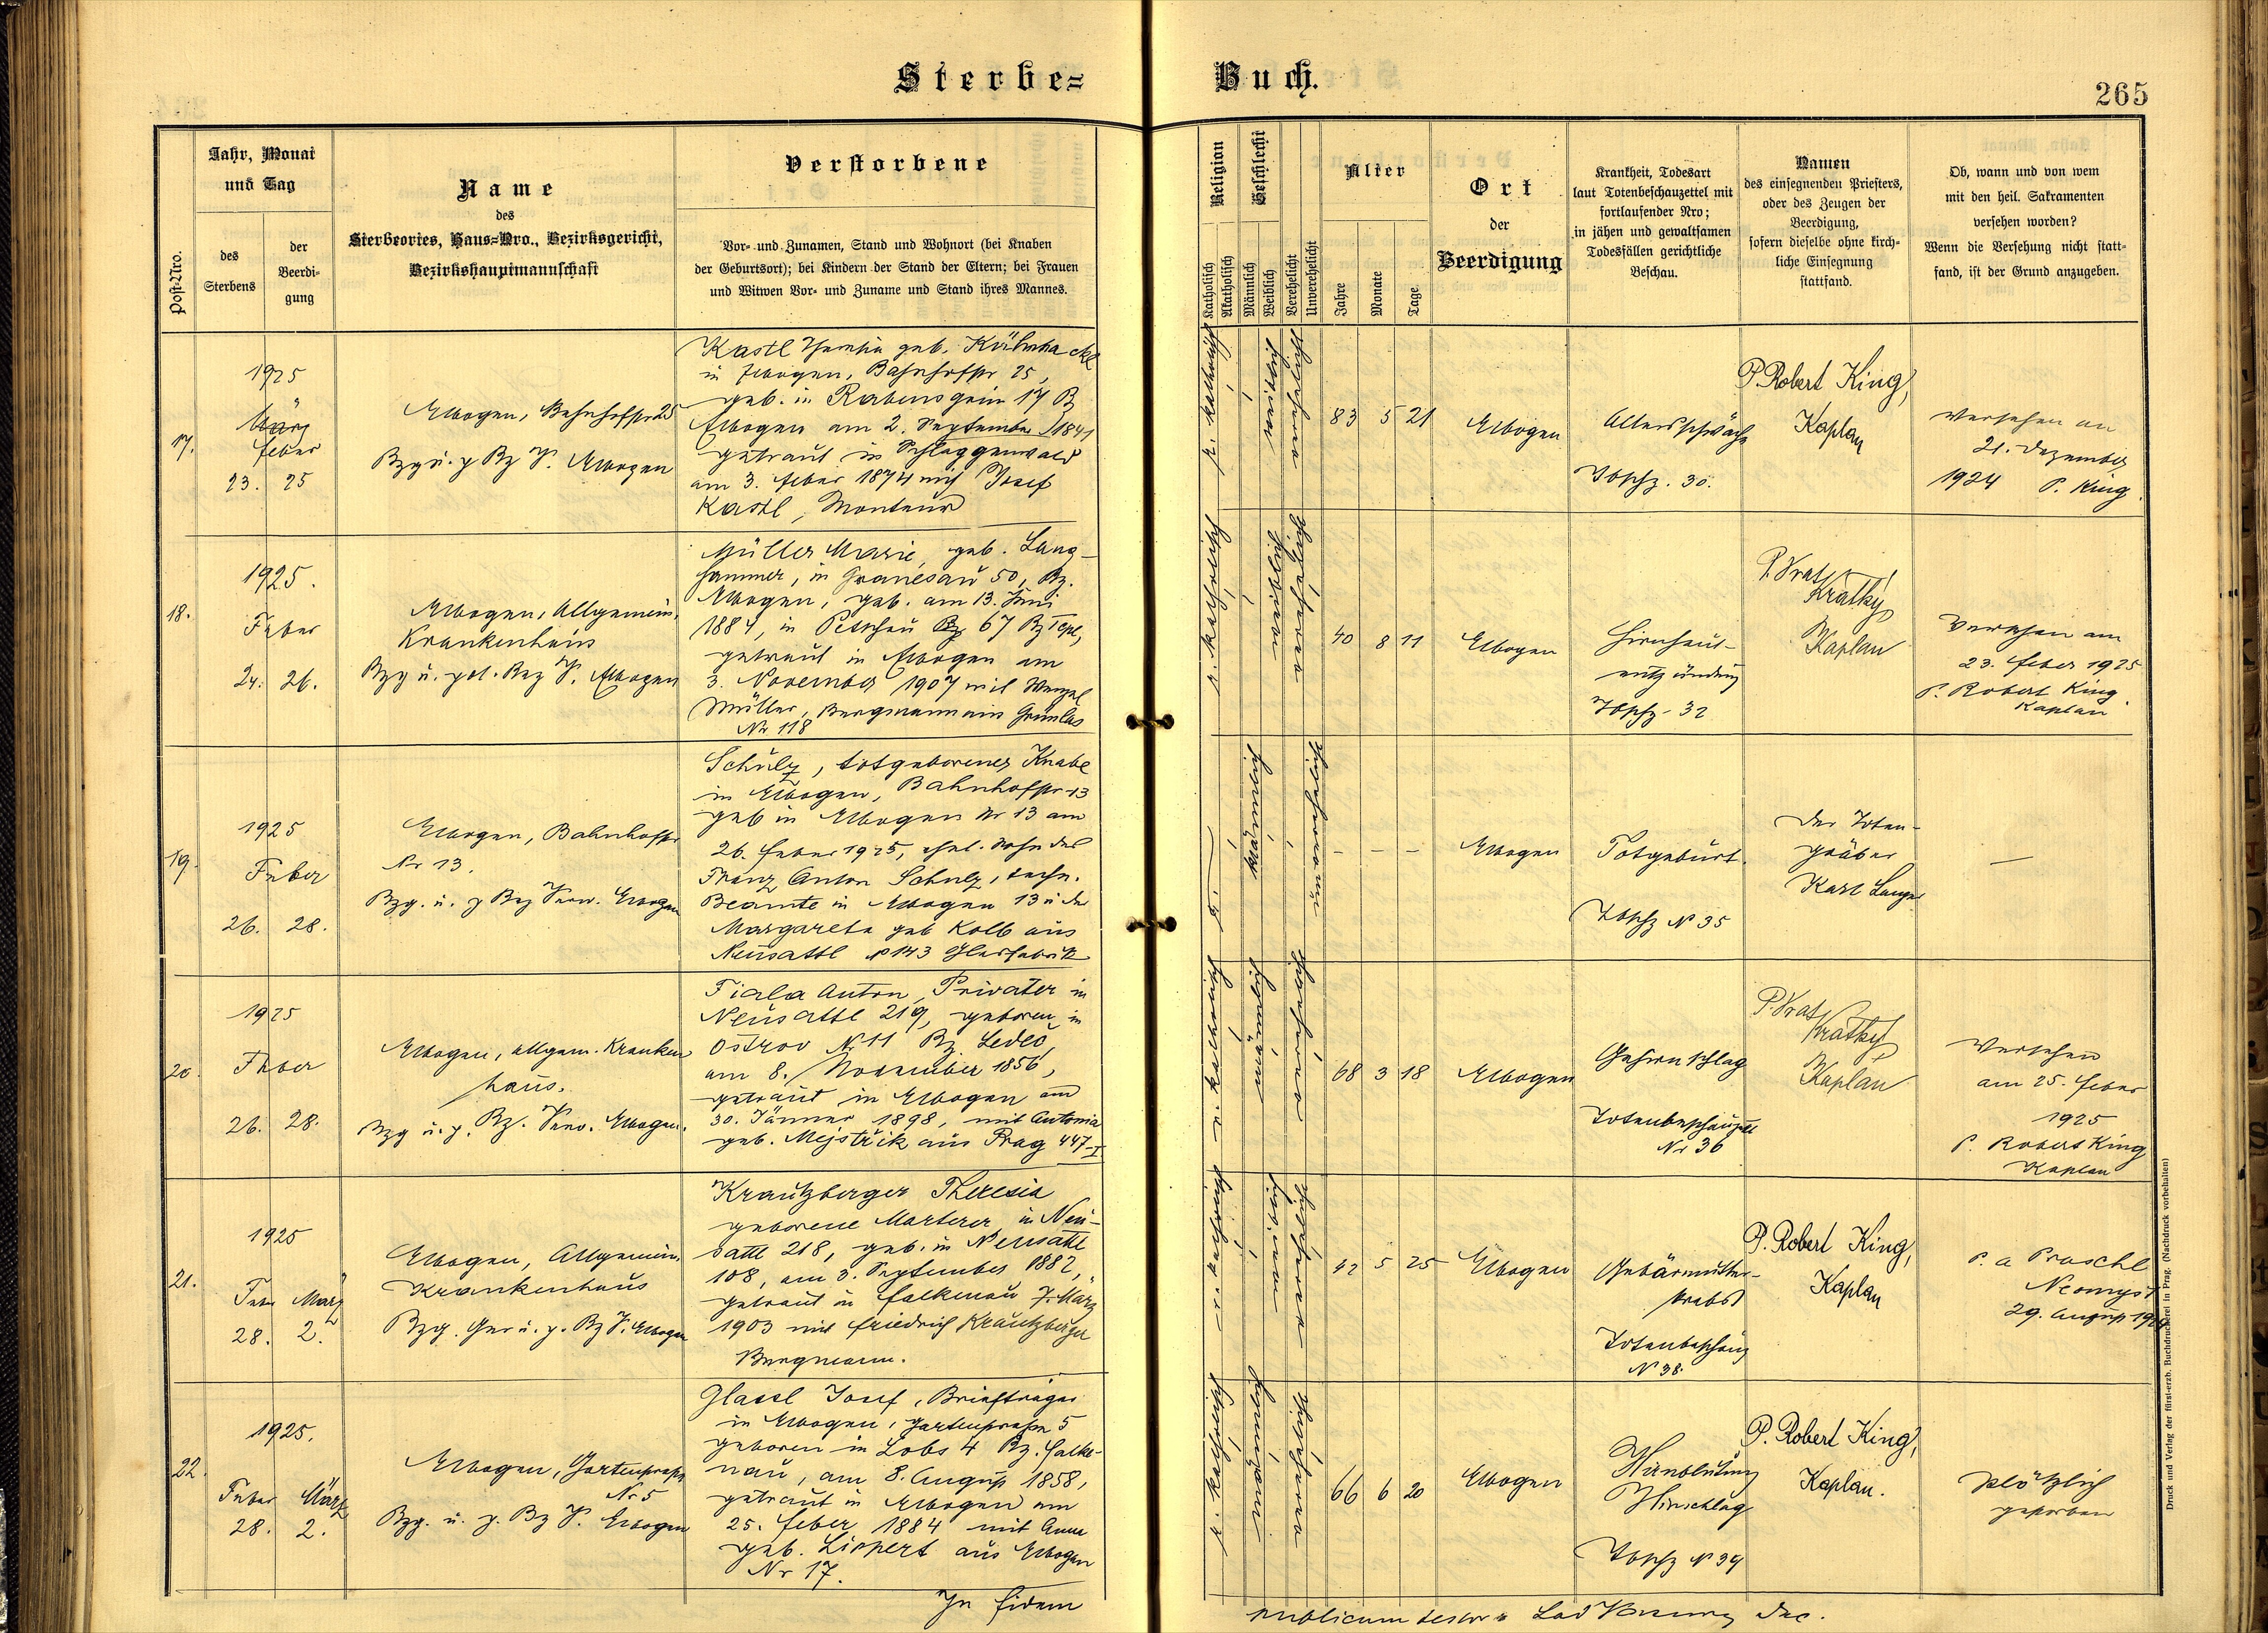 Sterbe= Buch.
265
Post-Nro.
Jahr, Monat
und Tag
des
Sterbens
der
Beerdi-
gung
Name
des
Sterbeortes, Haus-Nro., Bezirksgericht,
Bezirkshauptmannschaft
Verstorbene
Vor- und Zunamen, Stand und Wohnort (bei Knaben
der Geburtsort); bei Kindern der Stand der Eltern; bei Frauen
und Witwen Vor- und Zuname und Stand ihres Mannes.
Religion
Katholisch
Akatholisch
Geschlecht
Männlich
Weiblich
Verehelicht
Unverehelicht
Alter
Jahre
Monate
Tage
Ort
der
Beerdigung
Krankheit, Todesart
laut Totenbeschauzettel mit
fortlaufender Nro;
in jähen und gewaltsamen
Todesfällen gerichtliche
Beschau.
Namen
des einsegnenden Priesters,
oder des Zeugen der
Beerdigung,
sofern dieselbe ohne kirch-
liche Einsegnung
stattfand.
Ob, wann und von wem
mit den heil. Sakramenten
versehen worden?
Wenn die Versehung nicht statt-
fand, ist der Grund anzugeben.
17.
1925
März
feber
23. 25
Elbogen, Bahnhofstr 25
Bzg u. p Bz V. Elbogen
Kastl geb.
in Elbogen, Bahnhofstr 25,
geb. in Rabensgrün 17 Bz
Elbogen am 2. September 1841
getraut in Schlaggenwald
am 3. feber 1874 mit Josef
Kastl, Monteur
r. katholisch
weiblich
verehelicht
83 5 21
Elbogen
Altersschwäche
Tbschz. 30.
P. Robert King,
Kaplan
versehen am
21. Dezember
1924 P. King
18.
1925.
Feber
24. 26.
Elbogen, Allgemein.
Krankenhaus
Bzg u. pol. Bez V. Elbogen
Müller Marie, geb. Lang-
hammer, in Granesau 50, Bz.
Elbogen, geb. am 13. Juni
1884, in Petschau 67 Bz Tepl,
getraut in Elbogen am
3. November 1907 mit Wenzel
Müller, Bergmann in Grünlas
Nr 118
r. katholisch
weiblich
verehelicht
40 8 11
Elbogen
Hirnhaut-
entzündung
Tbschz. 32
P. Vrat. Krátký
Kaplan
Versehen am
23. feber 1925
P. Robert King
Kaplan
19.
1925
Feber
26. 28.
Elbogen, Bahnhofstr
Nr 13.
Bzg. u. p Bez Verw. Elbogen
Schulz, totgeborener Knabe
in Elbogen, Bahnhofstr 13
geb in Elbogen Nr 13 am
26. feber 1925, ehel. Sohn des
Franz Anton Schulz, techn.
Beamte in Elbogen 13 u der
Margareta geb Kolb aus
Neusattl № 143 Glasfabrik
männlich
unverehelicht
– – –
Elbogen
Totgeburt.
Tbschz № 35
Der Toten-
gräber
Karl Langer
—
20.
1925
Feber
26. 28.
Elbogen, allgem. Kranken
haus.
Bzg u. p. Bz. Verw. Elbogen.
Fiala Anton, Privater in
Neusattl 219, geboren in
Ostrov Nr 11 Bz. Ledeč,
am 8. November 1856,
getraut in Elbogen am
30. Jänner 1898, mit Antonia
geb. Mejstřik aus Prag 447-I
r. katholisch
männlich
verehelicht
68 3 18
Elbogen
Gehirnschlag
Totenbeschauzettl
Nr 36
P. Vrat. Krátký
Kaplan
Versehen
am 25. feber
1925
P. Robert King
Kaplan
21.
1925
Feber März
28. 2.
Elbogen, Allgemein.
Krankenhaus
Bzg. Ger u. p. Bz V. Elbogen
Krautzberger Theresia
geborene Marterer, in Neu-
sattl 218, geb. in Neusattl
108, am 3. September 1882,
getraut in Falkenau 7. März
1903 mit Friedrich Krautzberger
Bergmann.
r. katholisch
weiblich
verehelicht
42 5 25
Elbogen
Gebärmutter-
krebs
Totenbeschauz
№ 38.
P. Robert King,
Kaplan
P. a Proschl
Neomyst
29. August
22.
1925.
Feber März
28. 2.
Elbogen, Gartenstrasse
Nr 5
Bzg. u. p. Bz V. Elbogen
Glassl Josef, Briefträger
in Elbogen, Gartenstrasse 5
geboren in Lobs 4 Bz. Falke-
nau, am 8. August 1858,
getraut in Elbogen am
25. feber 1884 mit Anna
geb. Lippert aus Elbogen
Nr 17.
r. katholisch
männlich
verehelicht
66 6 20
Elbogen
Hirnblutung
Hirnschlag
Tbschz № 39
P. Robert King,
Kaplan.
plötzlich
gestorben
In fidem
publicam testor Dec.
Druck und Verlag der fürst-erzb. Buchdruckerei in Prag. (Nachdruck vorbehalten)